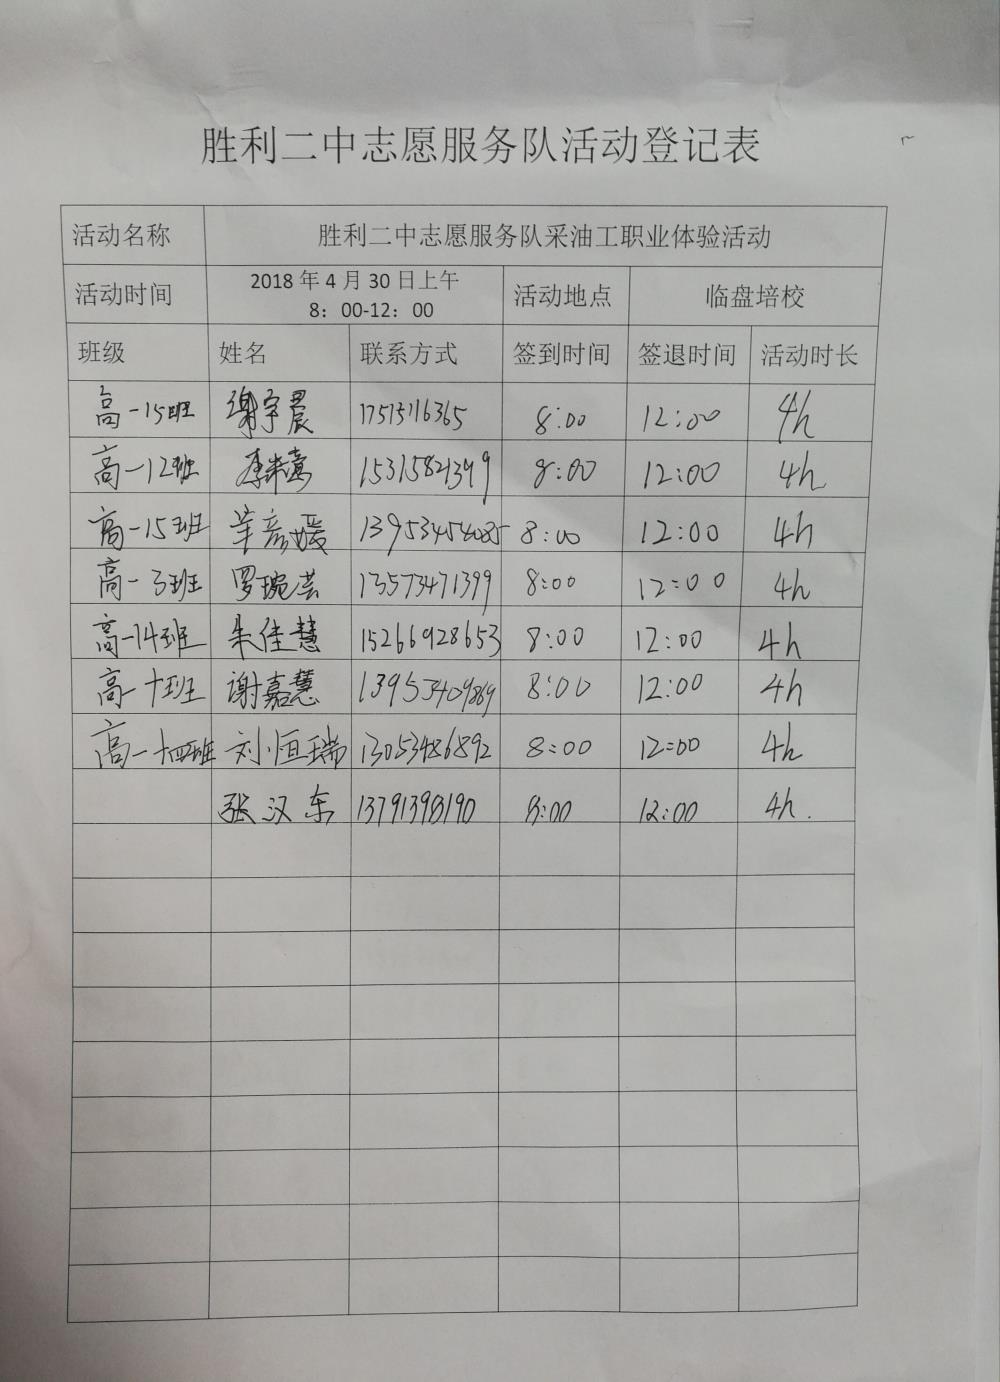 胜利二中志愿服务队活动登记表
活动名称 胜利二中志愿服务队采油工职业体验活动
活动时间 2018年4月30日上午 8：00-12：00 活动地点 临盘培校
班级 姓名 联系方式 签到时间 签退时间 活动时长
高一15班 谢宇晨 17515116365 8:00 12:00 4h
高一12班 15315821349 8:00 12:00 4h
高一15班 13953454085 8:00 12:00 4h
高一3班 罗琬芸 13573471399 8:00 12:00 4h
高一14班 朱佳慧 15266928653 8:00 12:00 4h
高一十班 谢嘉慧 13953409869 8:00 12:00 4h
高一十四班 刘恒瑞 13053486892 8:00 12:00 4h
张汉东 13791398190 8:00 12:00 4h.